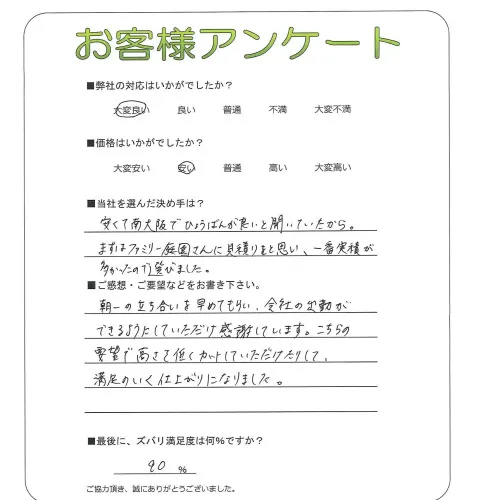 お客様アンケート
■弊社の対応はいかがでしたか？
大変良い 良い 普通 不満 大変不満
■価格はいかがでしたか？
大変安い 安い 普通 高い 大変高い
■当社を選んだ決め手は？
安くて南大阪でひょうばんが良いと聞いていたから。
まずはファミリー庭園さんに見積りをと思い、一番実積が
多かったので選びました。
■ご感想・ご要望などをお書き下さい。
朝一の立ち合いを早めてもらい、会社の出勤が
できるようにしていただけ感謝してします。こちらの
要望で高さを低くカットしていただけたりして、
満足のいく仕上がりになりました。
■最後に、ズバリ満足度は何%ですか？
90 %
ご協力頂き、誠にありがとうございました。